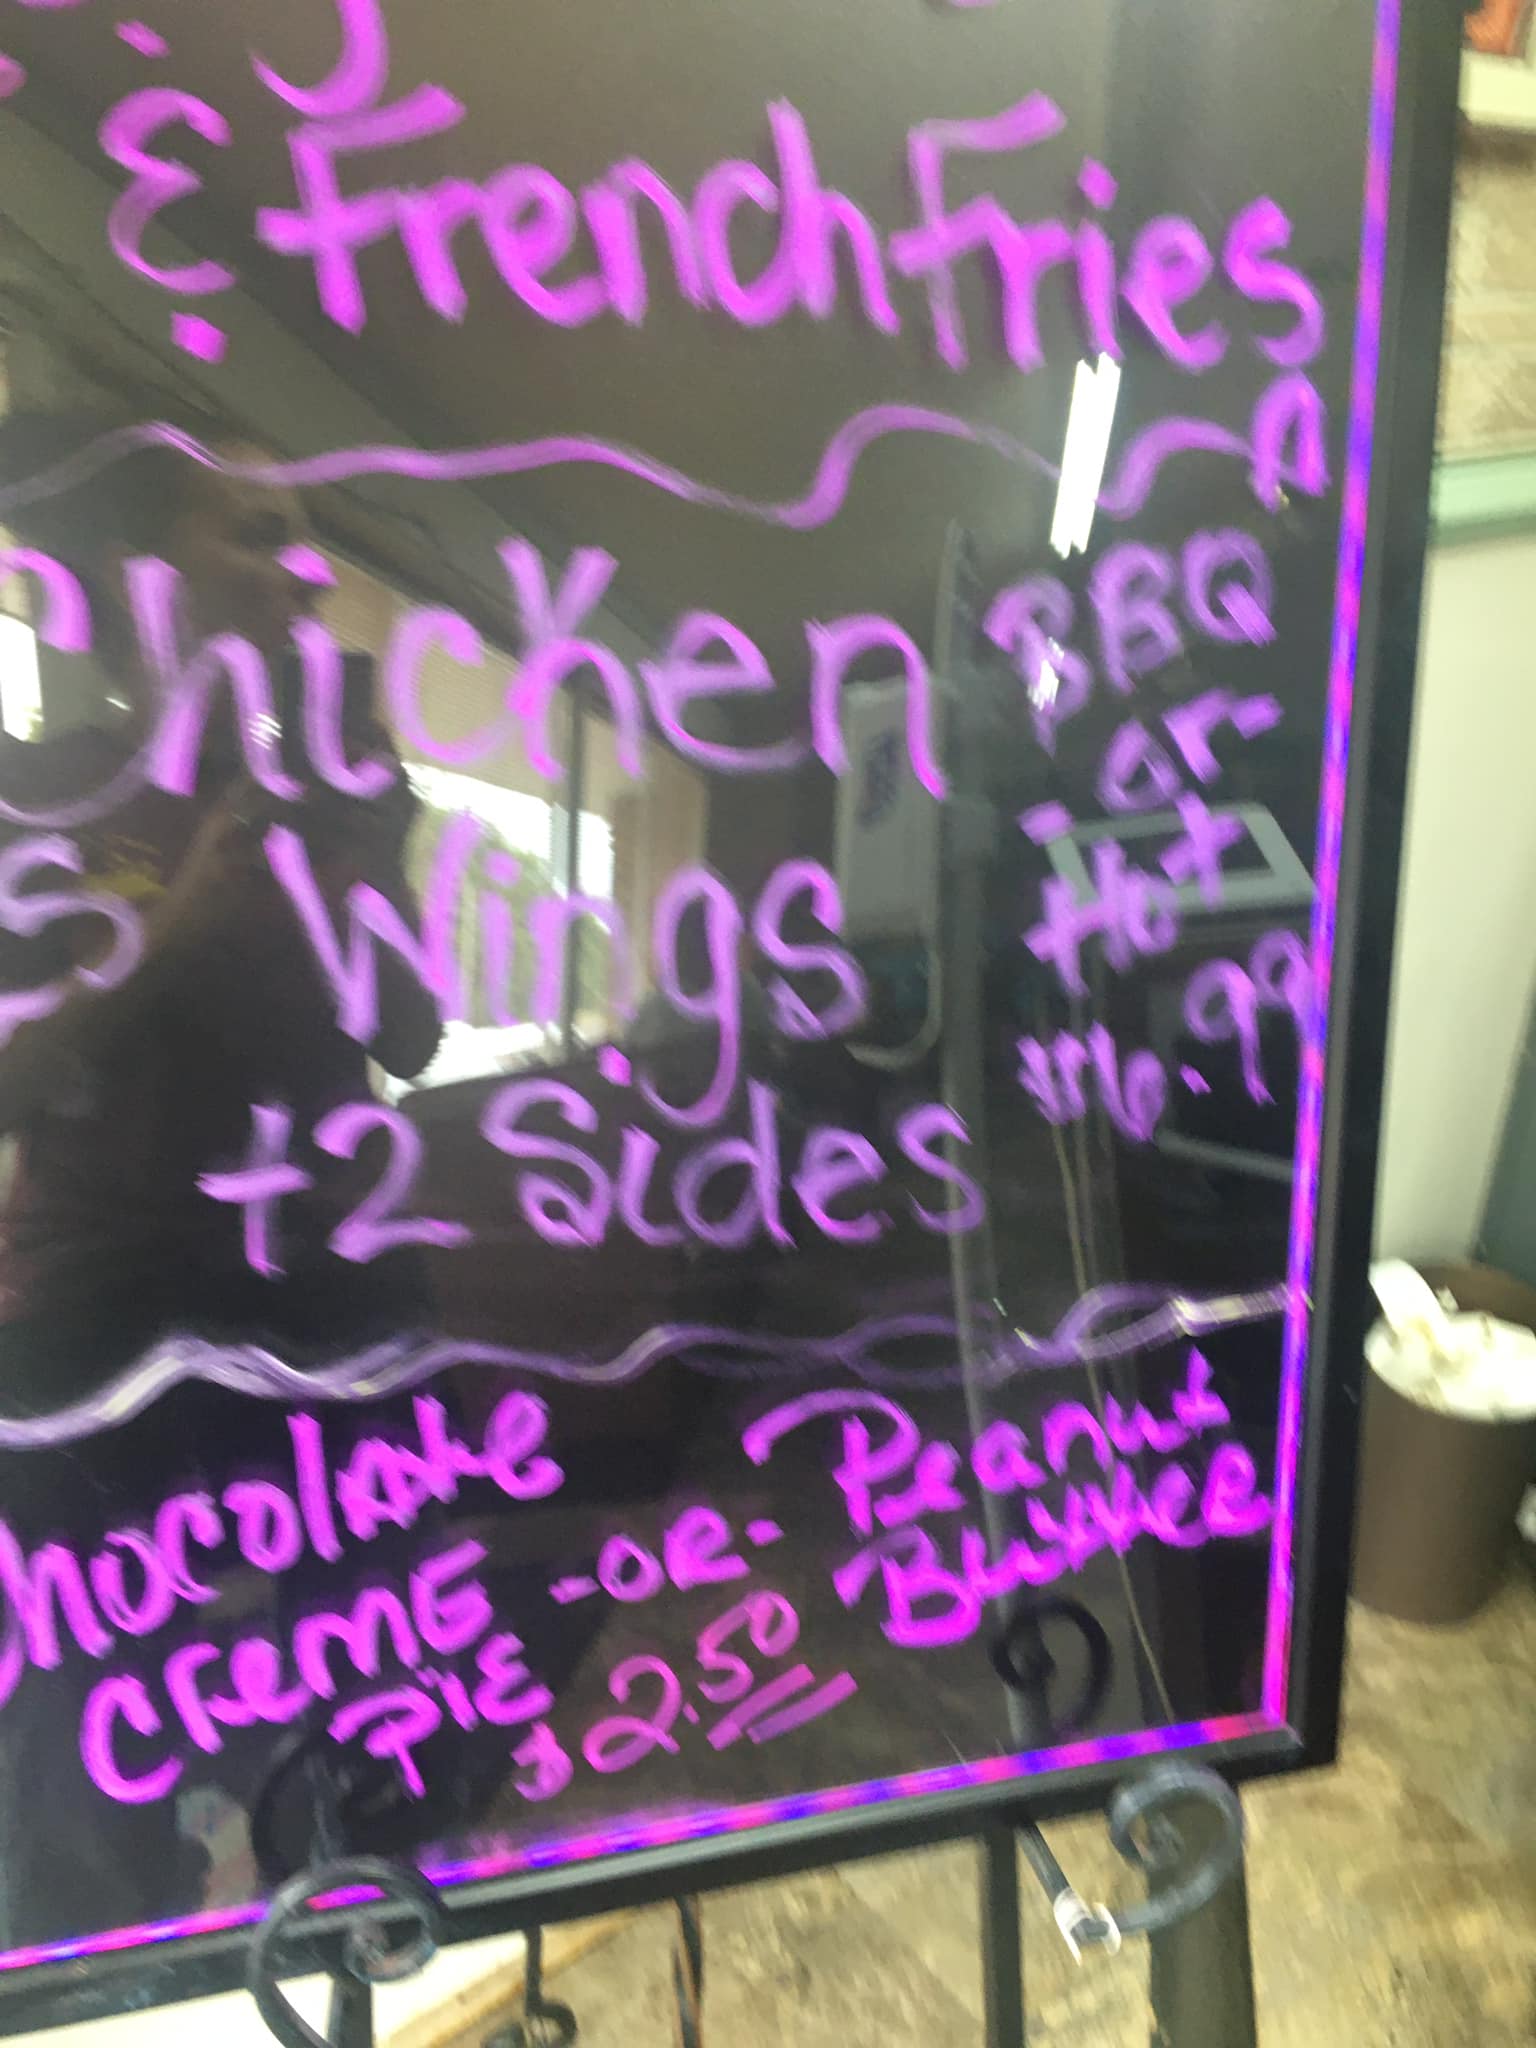 & French Fries
Chicken
BBQ
or
Hot
Wings
.99
+2 Sides
Chocolate
CremE
PiE
-OR-
Peanut
Butter
$2.50